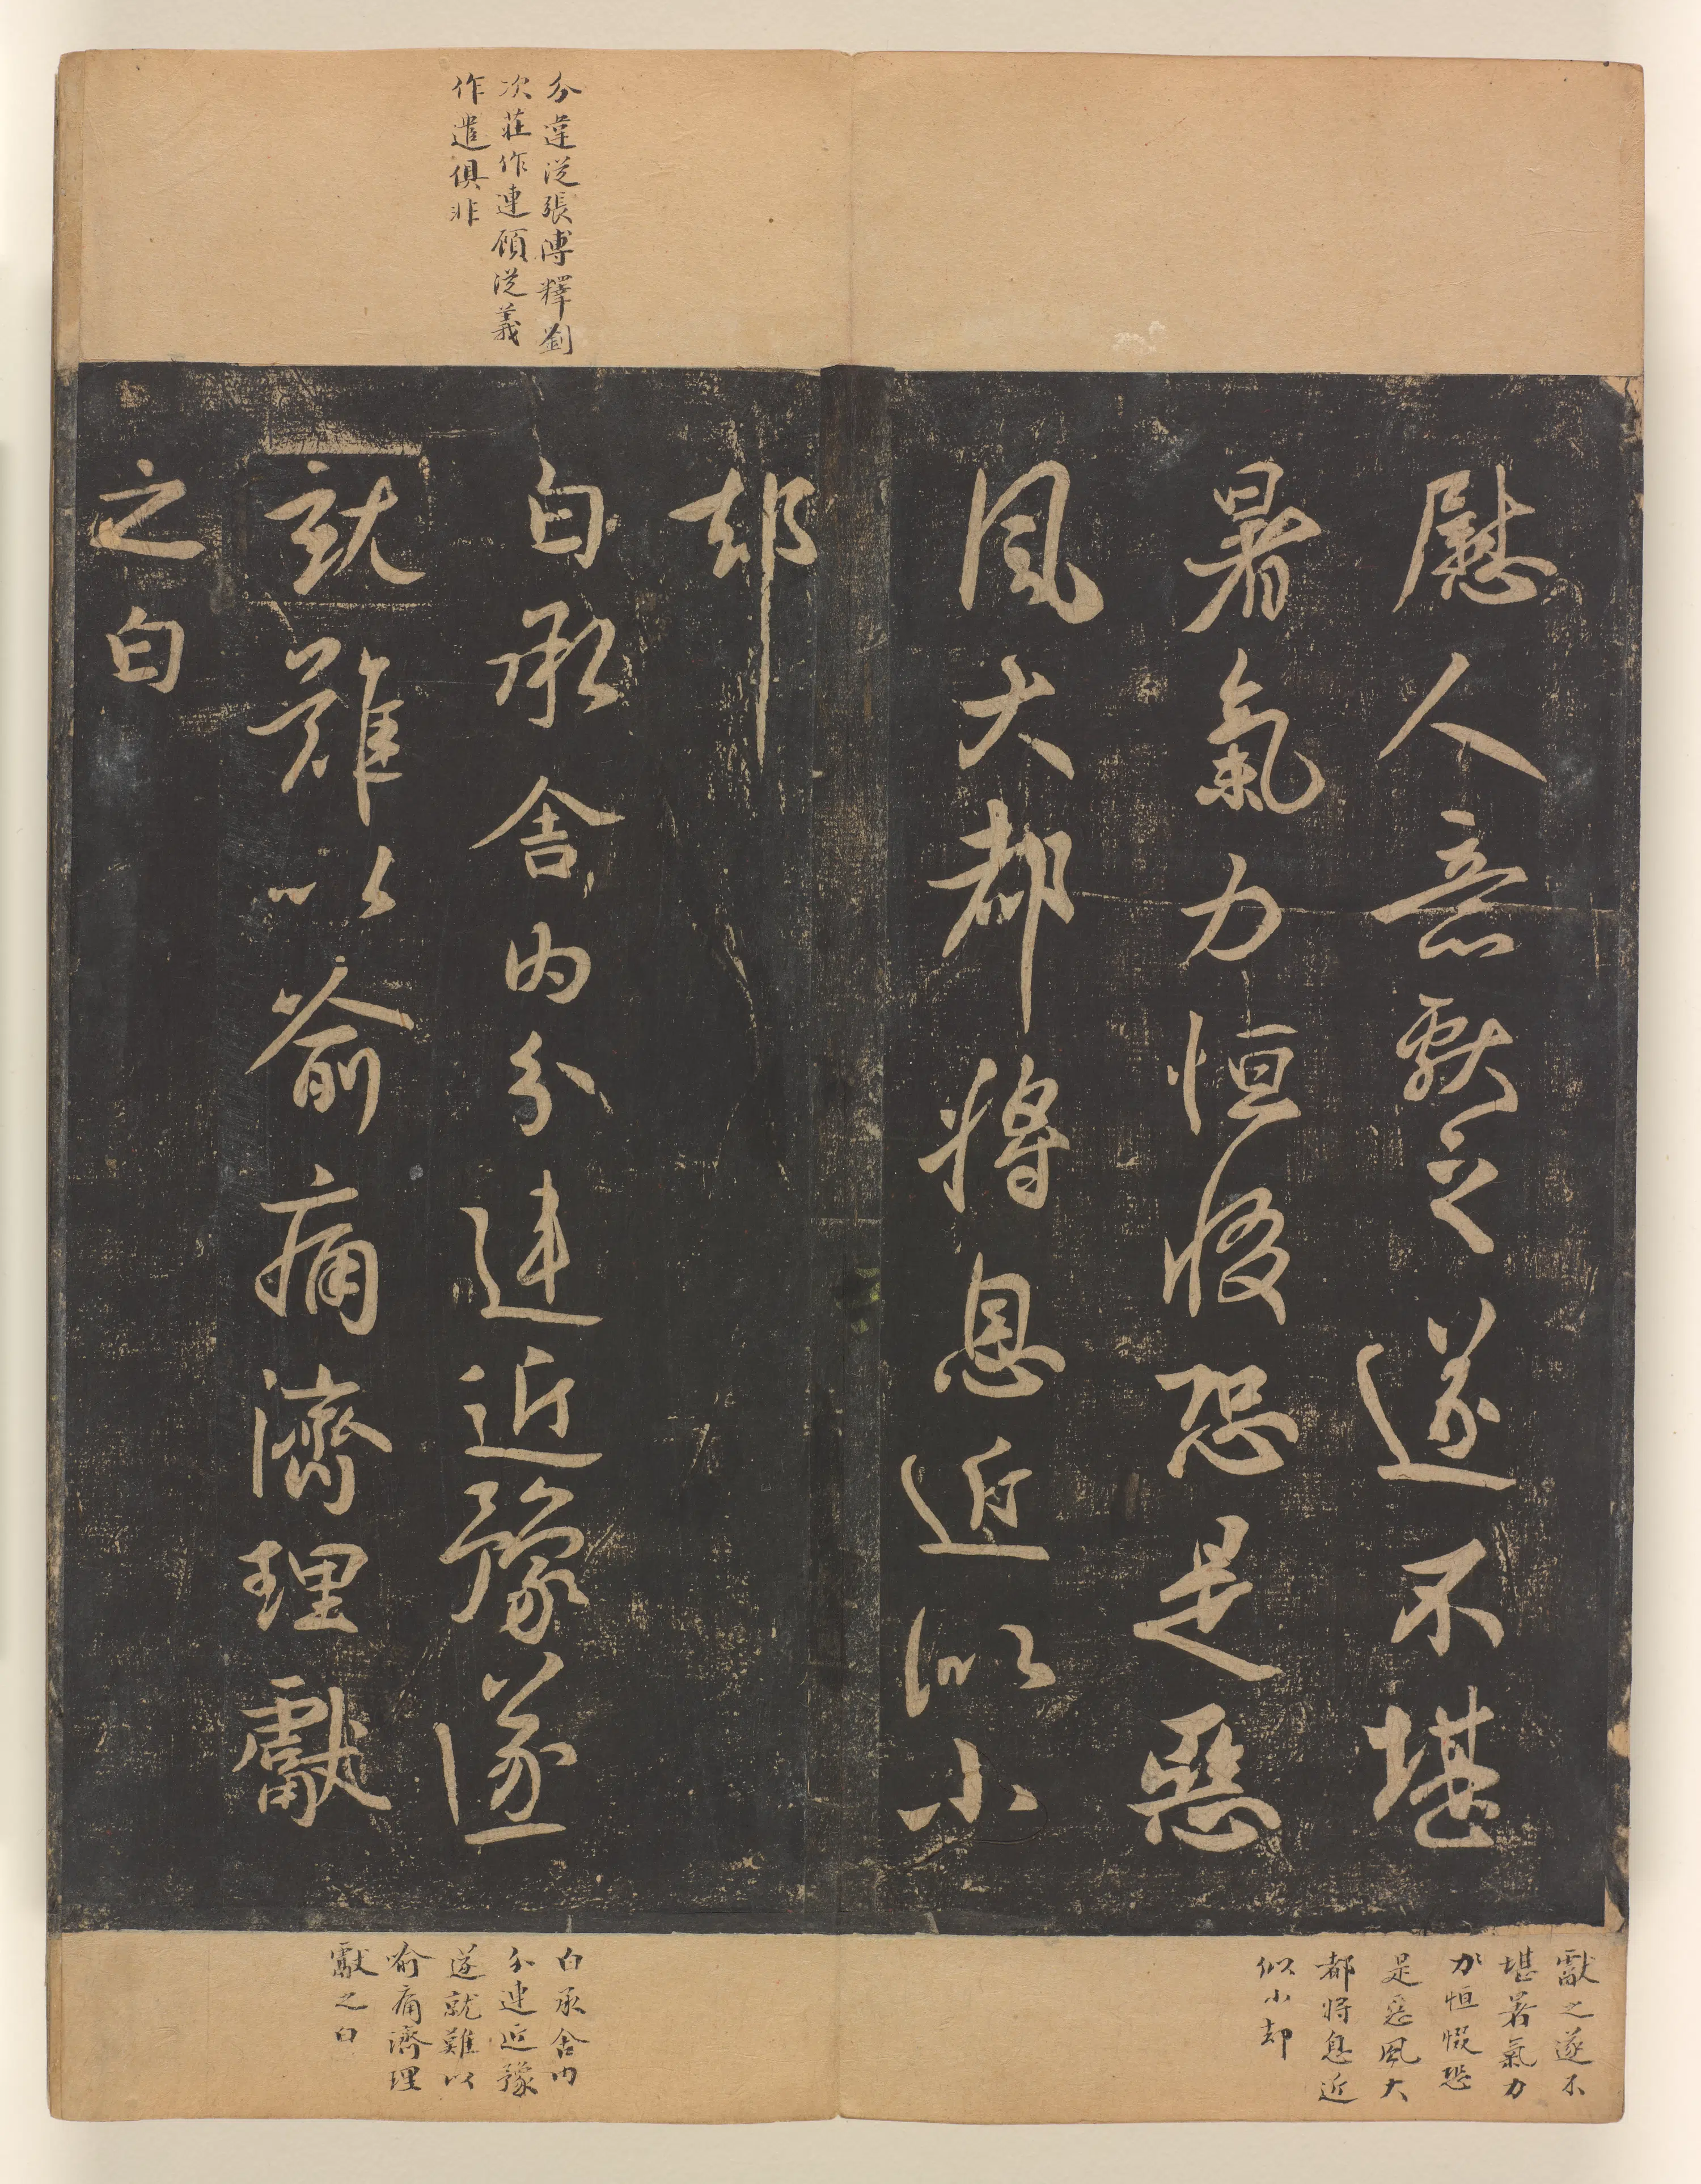 慰人意獻之遂不堪
暑氣力恒惙恐是惡
風大都將息近似小
却
白承舍內分違近豫遂
就難以喻痛濟理獻
之白
分違從張溥釋劉
次莊作連顧從義
作遣俱非
獻之遂不
堪暑氣力
恒惙恐
是惡風大
都將息近
似小却
白承舍內
分違近豫
遂就難以
喻痛濟理
獻之白